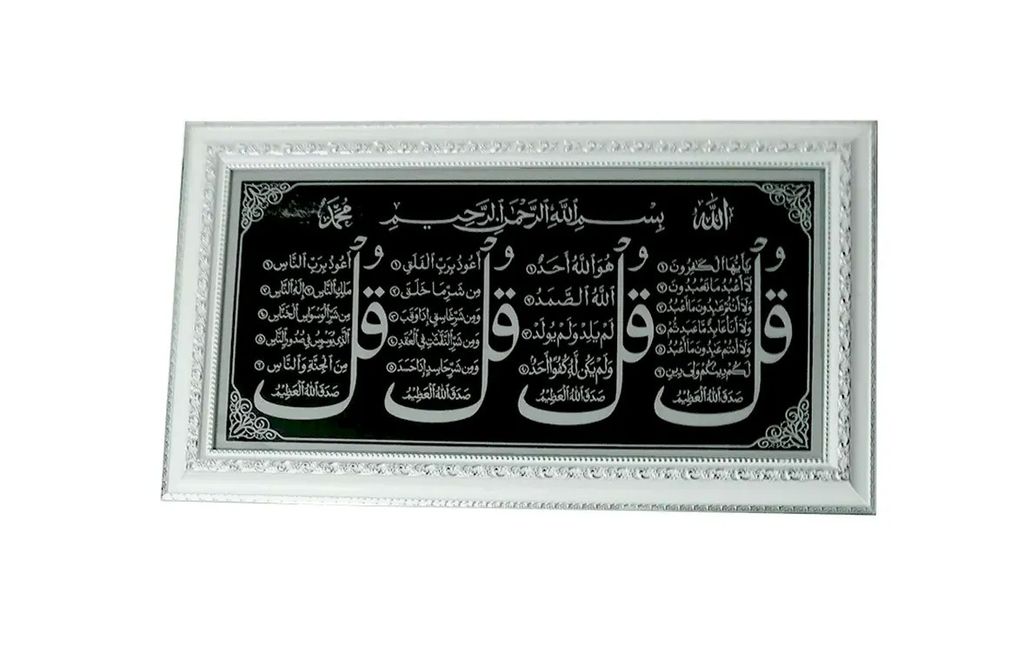 الله
بِسْمِ اللهِ الرَّحْمٰنِ الرَّحِيمِ
مُحَمَّد
قُلْ
يَا أَيُّهَا الْكَافِرُونَ ١
لَا أَعْبُدُ مَا تَعْبُدُونَ ٢
وَلَا أَنْتُمْ عَابِدُونَ مَا أَعْبُدُ ٣
وَلَا أَنَا عَابِدٌ مَا عَبَدْتُمْ ٤
وَلَا أَنْتُمْ عَابِدُونَ مَا أَعْبُدُ ٥
لَكُمْ دِينُكُمْ وَلِيَ دِينِ ٦
صَدَقَ اللهُ الْعَظِيمُ
قُلْ
هُوَ اللهُ أَحَدٌ ١
اللهُ الصَّمَدُ ٢
لَمْ يَلِدْ وَلَمْ يُولَدْ ٣
وَلَمْ يَكُنْ لَهُ كُفُوًا أَحَدٌ ٤
صَدَقَ اللهُ الْعَظِيمُ
قُلْ
أَعُوذُ بِرَبِّ الْفَلَقِ ١
مِنْ شَرِّ مَا خَلَقَ ٢
وَمِنْ شَرِّ غَاسِقٍ إِذَا وَقَبَ ٣
وَمِنْ شَرِّ النَّفَّاثَاتِ فِي الْعُقَدِ ٤
وَمِنْ شَرِّ حَاسِدٍ إِذَا حَسَدَ ٥
صَدَقَ اللهُ الْعَظِيمُ
قُلْ
أَعُوذُ بِرَبِّ النَّاسِ ١
مَلِكِ النَّاسِ ٢ إِلٰهِ النَّاسِ ٣
مِنْ شَرِّ الْوَسْوَاسِ الْخَنَّاسِ ٤
الَّذِي يُوَسْوِسُ فِي صُدُورِ النَّاسِ ٥
مِنَ الْجِنَّةِ وَالنَّاسِ ٦
صَدَقَ اللهُ الْعَظِيمُ